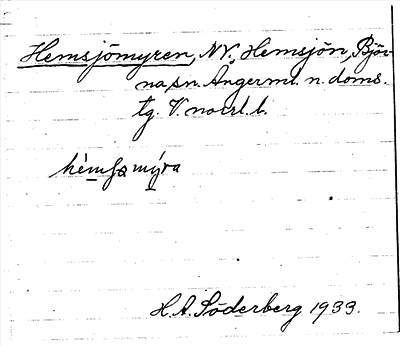 Hemsjömyren, NV. Hemsjön, Björ-
na sn. Ångerml. n. doms.
tg. V. norrl. l.
hèmſəmýra
H. A. Söderberg 1933.